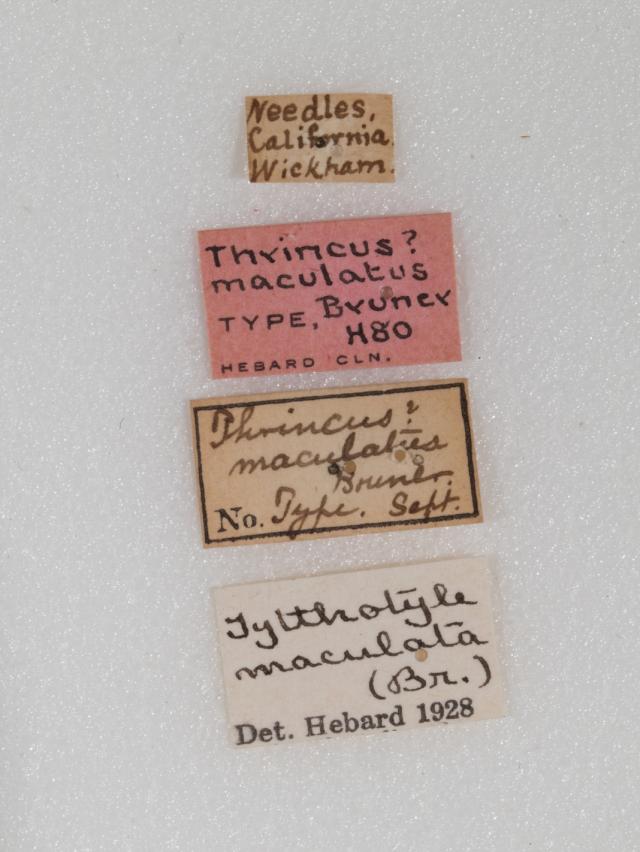 Needles,
California.
Wickham.
Thrincus?
maculatus
TYPE, Bruner
H80
HEBARD CLN.
Thrincus?
maculatus
Bruner.
No. Type. Sept.
Tytthotyle
maculata
(Br.)
Det. Hebard 1928